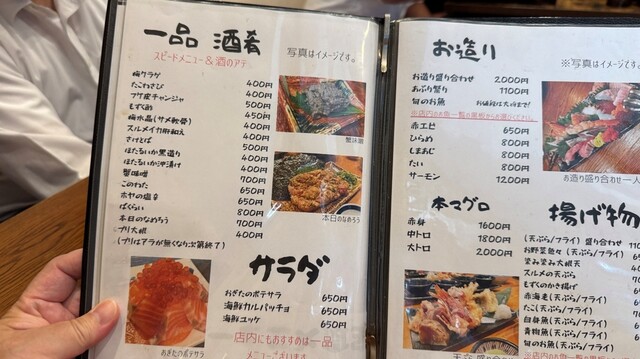 一品 酒肴
スピードメニュー&酒のアテ
写真はイメージです。
梅クラゲ 400円
たこわさび 400円
フグ皮チャンジャ 500円
もずく酢 450円
梅水晶(サメ軟骨) 400円
スルメイカ麹和え 400円
さけとば 500円
ほたるいか黒造り 400円
ほたるいか沖漬け 400円
蟹味噌 700円
このわた 650円
ホヤの塩辛 650円
ばくらい 800円
本日のなめろう 700円
(ブリはアラが無くなり次第終了) 400円
蟹味噌
本日のなめろう
サラダ
おぎたのポテサラ 650円
海鮮カルパッチョ 650円
海鮮ユッケ 650円
店内にもおすすめは一品
メニューございます
おぎたのポテサラ
お造り
※写真はイメージです。
お造り盛り合わせ 2,000円
あぶり祭り 1100円
旬のお魚
赤エビ 650円
ひらめ 800円
しまあじ 800円
たい 800円
サーモン 1,200円
お造り盛り合わせ一人
本マグロ
赤身 1600円
中トロ 1800円
大トロ 2,000円
揚げ物
(天ぷら/フライ) 盛り合わせ 110
お野菜色々(天ぷら/フライ)
スルメの天ぷら
もずくのかき揚げ
赤海老(天ぷら/フライ)
たこ(天ぷら/フライ)
白身魚(天ぷら/フライ)
青物魚(天ぷら/フライ)
旬のお魚(天ぷら/フライ)